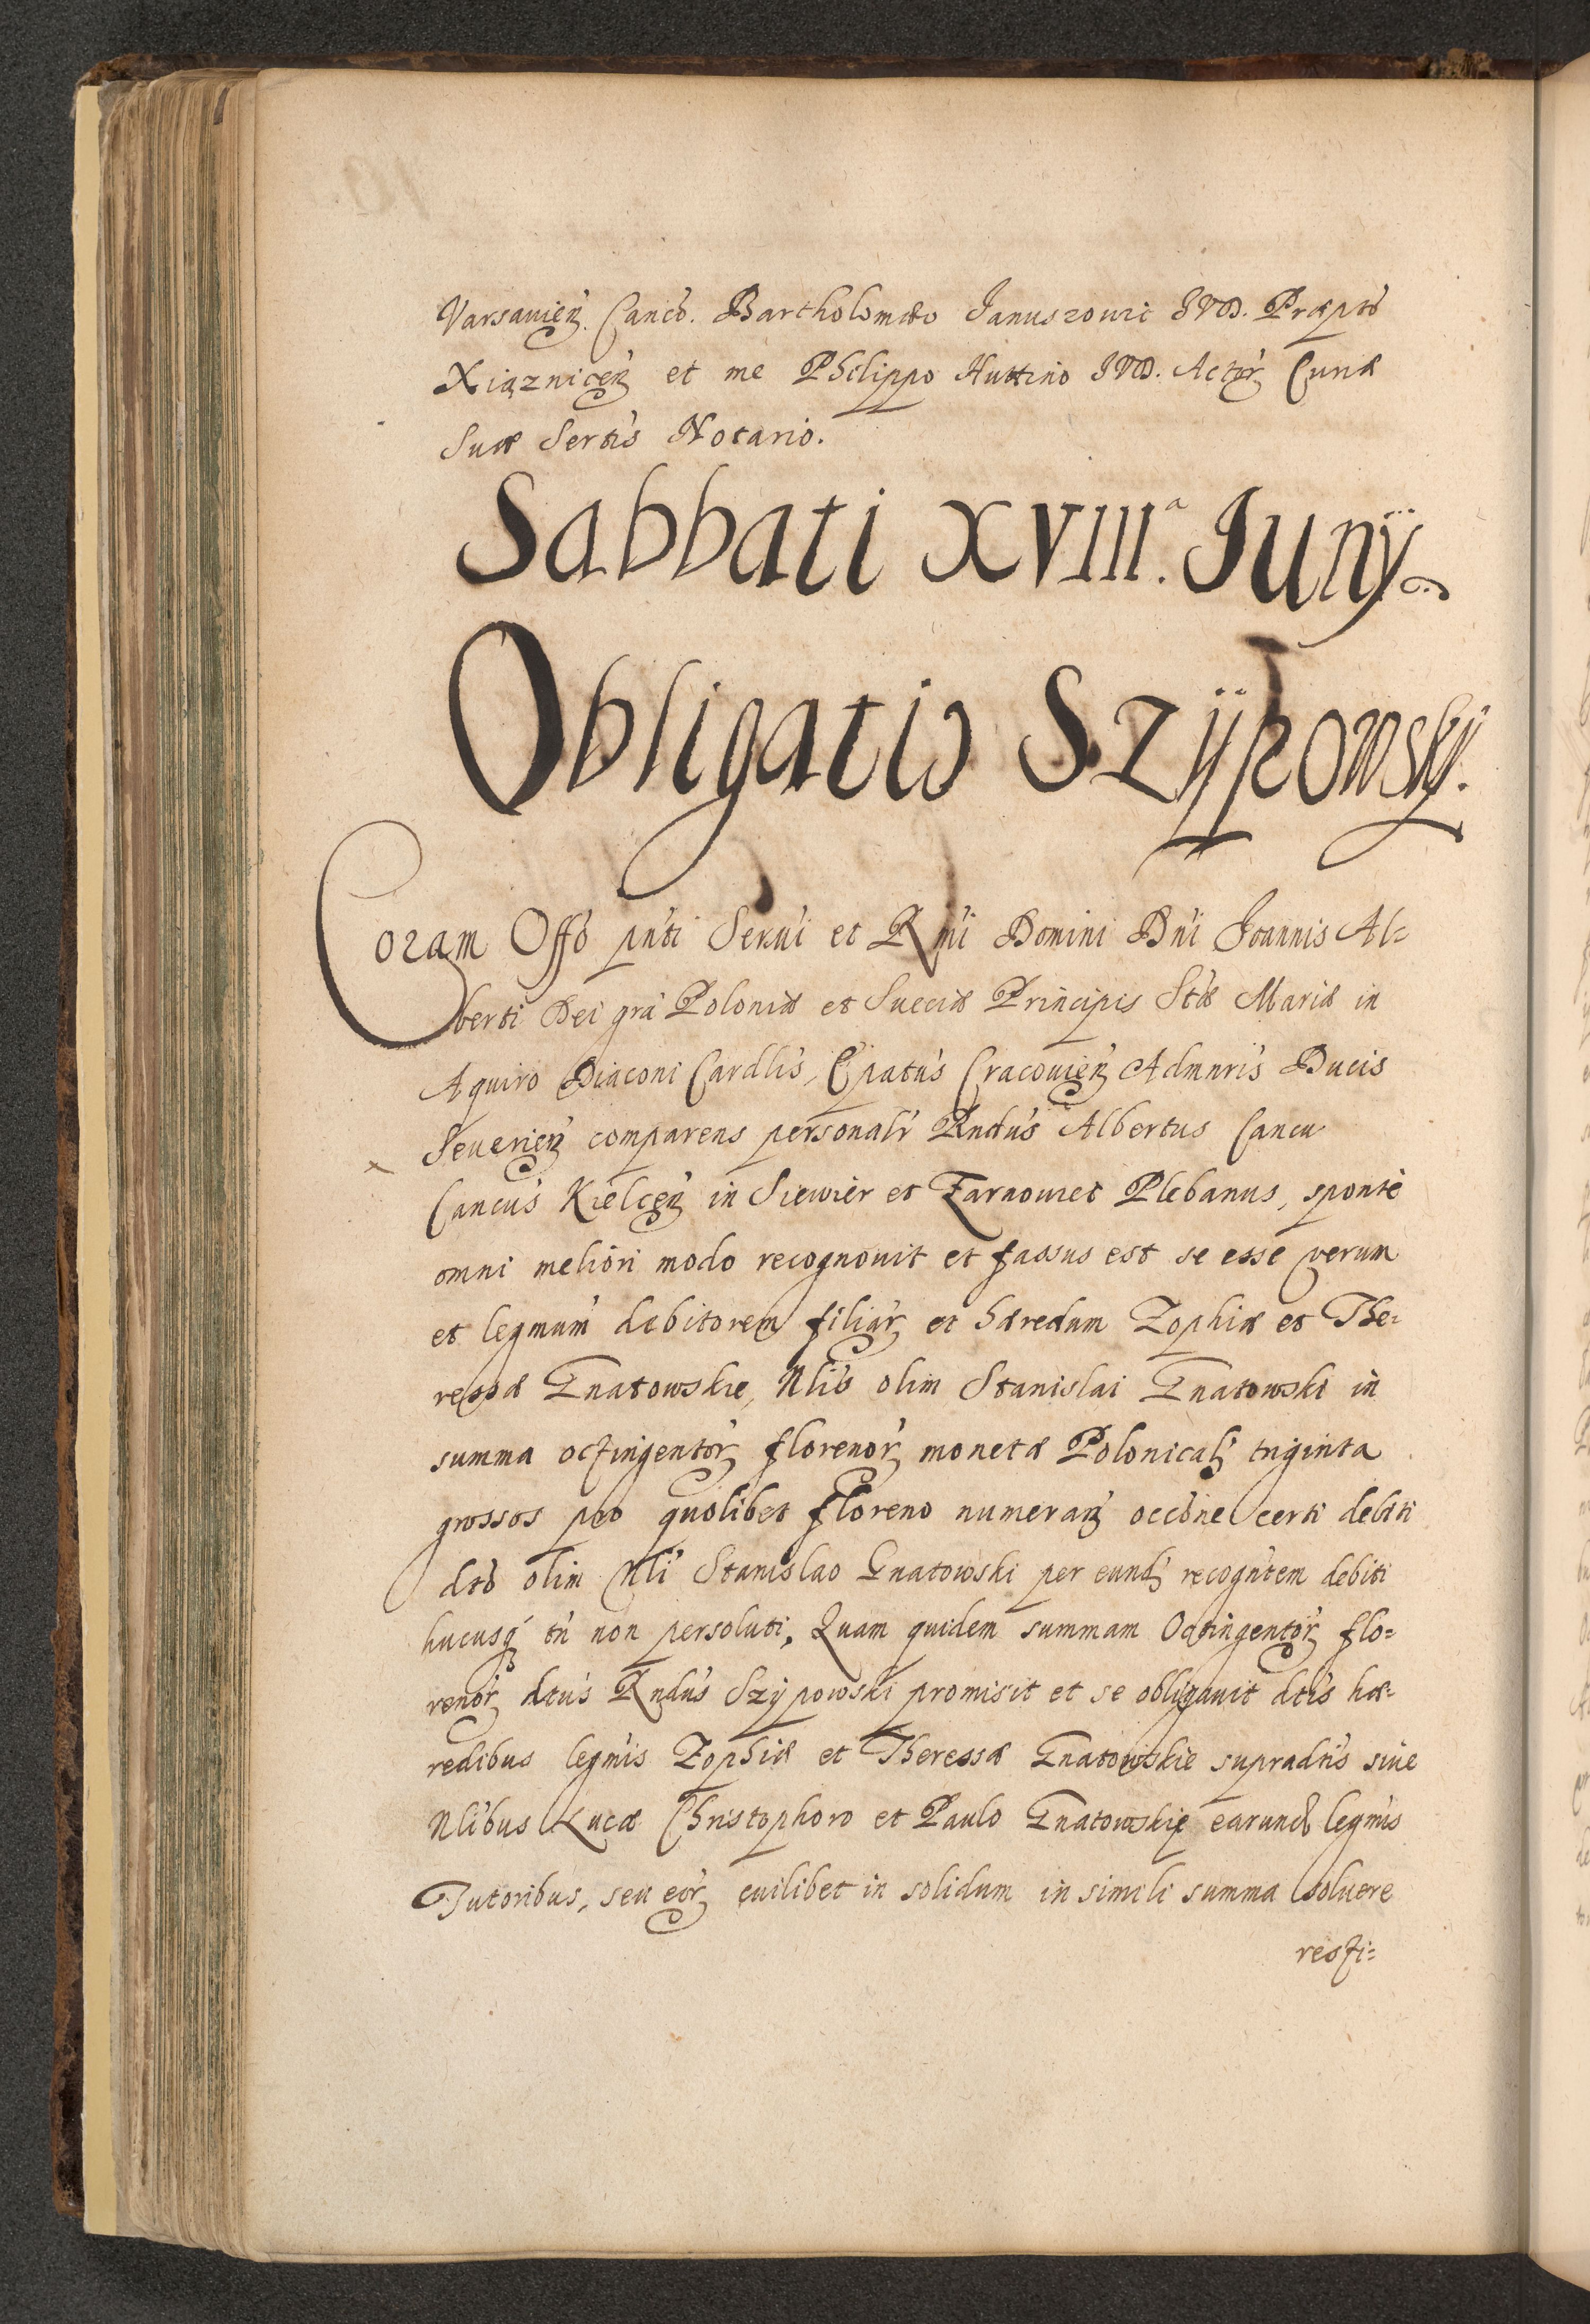 Varsavien. Canco. Bartholomæo Januszowic IVD. Præpto
Xiąznicen et me Philippo Huttino IVD. Actor Curiæ
Suæ Sertis Notario.
Sabbati XVIII.a Junÿ
Obligatio Szÿpowskÿ.
Coram Offo pnti Sermi et Rmi Domini Dni Joannis Al=
berti Dei gra Poloniæ et Sueciæ Principis Stæ Mariæ in
Aquiro Diaconi Cardlis, Epatus Cracovien Admnris Ducis
Severien comparens personalr Rndus Albertus Cancu
Cancus Kielcen in Siewier et Żarnowiec Plebanus, sponte
omni meliori modo recognovit et fassus est se esse verum
et legmum debitorem filiar et hæredum Zophiæ et The=
ressæ Gnatowskie, Nlis olim Stanislai Gnatowski in
summa octingentor florenor monetæ Polonical triginta
grossos pro quolibet floreno numeran occone certi debiti
dto olim Nli Stanislao Gnatowski per eund recogntem debiti
hucusq tn non persoluti, Quam quidem summam Octingentor flo=
renor dtus Rndus Szÿpowski promisit et se obligavit dtis hæ=
redibus legmis Zophiæ et Theressæ Gnatowskie supradtis sive
Nlibus Lucæ Christophoro et Paulo Gnatowskie earund legmis
Tutoribus, seu eor cuilibet in solidum in simili summa solvere
resti=